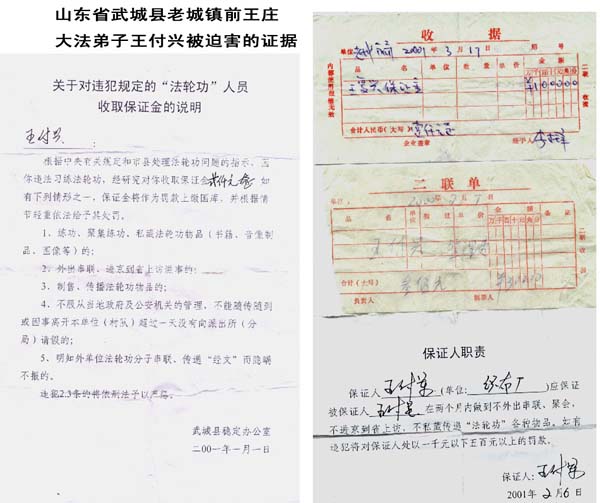 山东省武城县老城镇前王庄
大法弟子王付兴被迫害的证据
关于对违犯规定的“法轮功”人员
收取保证金的说明
王付兴:
根据中央有关规定和市县处理法轮功问题的指示,因
你违法习练法轮功,经研究对你收取保证金 如
有下列情形之一,保证金将作为罚款上缴国库,并根据情
节轻重依法给予其火罚。
1、练功、聚集练功、私藏法轮功物品(书籍、音像制
品、图像等)的;
2、外出串联、进京到省上访滋事的;
3、制售、传播法轮功物品的;
4、不服从当地政府及公安机关的管理,不能随传随到
或因事离开本单位(村队)超过一天没有向派出所(分
局)请假的;
5、明知外单位法轮功分子串联、传递“经文”而隐瞒
不报的。
违犯2.3条的将依刑法予以严惩。
武城县稳定办公室
二00一年一月一日
收 据
单位 2000年3月17日 第 号
品名 单位 数量 单价 金额
万千百十元角分
保证金 ¥100000
合计人民币(大写) 壹仟元正
企业盖章 经手人
内部使用对外无效
二联收据
二 联 单
单位: 年 月 日
品名 单位 数量 单价 金额 备注
万千百十元角分
王付兴
合计(大写) 壹仟元
负责人 制单人
保证人职责
保证人 (单位: 织布厂 )应保证
被保证人 王付兴 在两个月内做到不外出串联、聚会,
不进京到省上访,不私藏传递“法轮功”各种物品。如有
违犯将对保证人处以一千元以下五百元以上的罚款。
保证人:
2001年2月6日